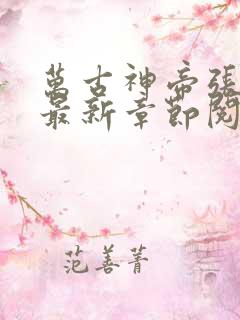 萬古神帝張
最新章節閱
范善菁